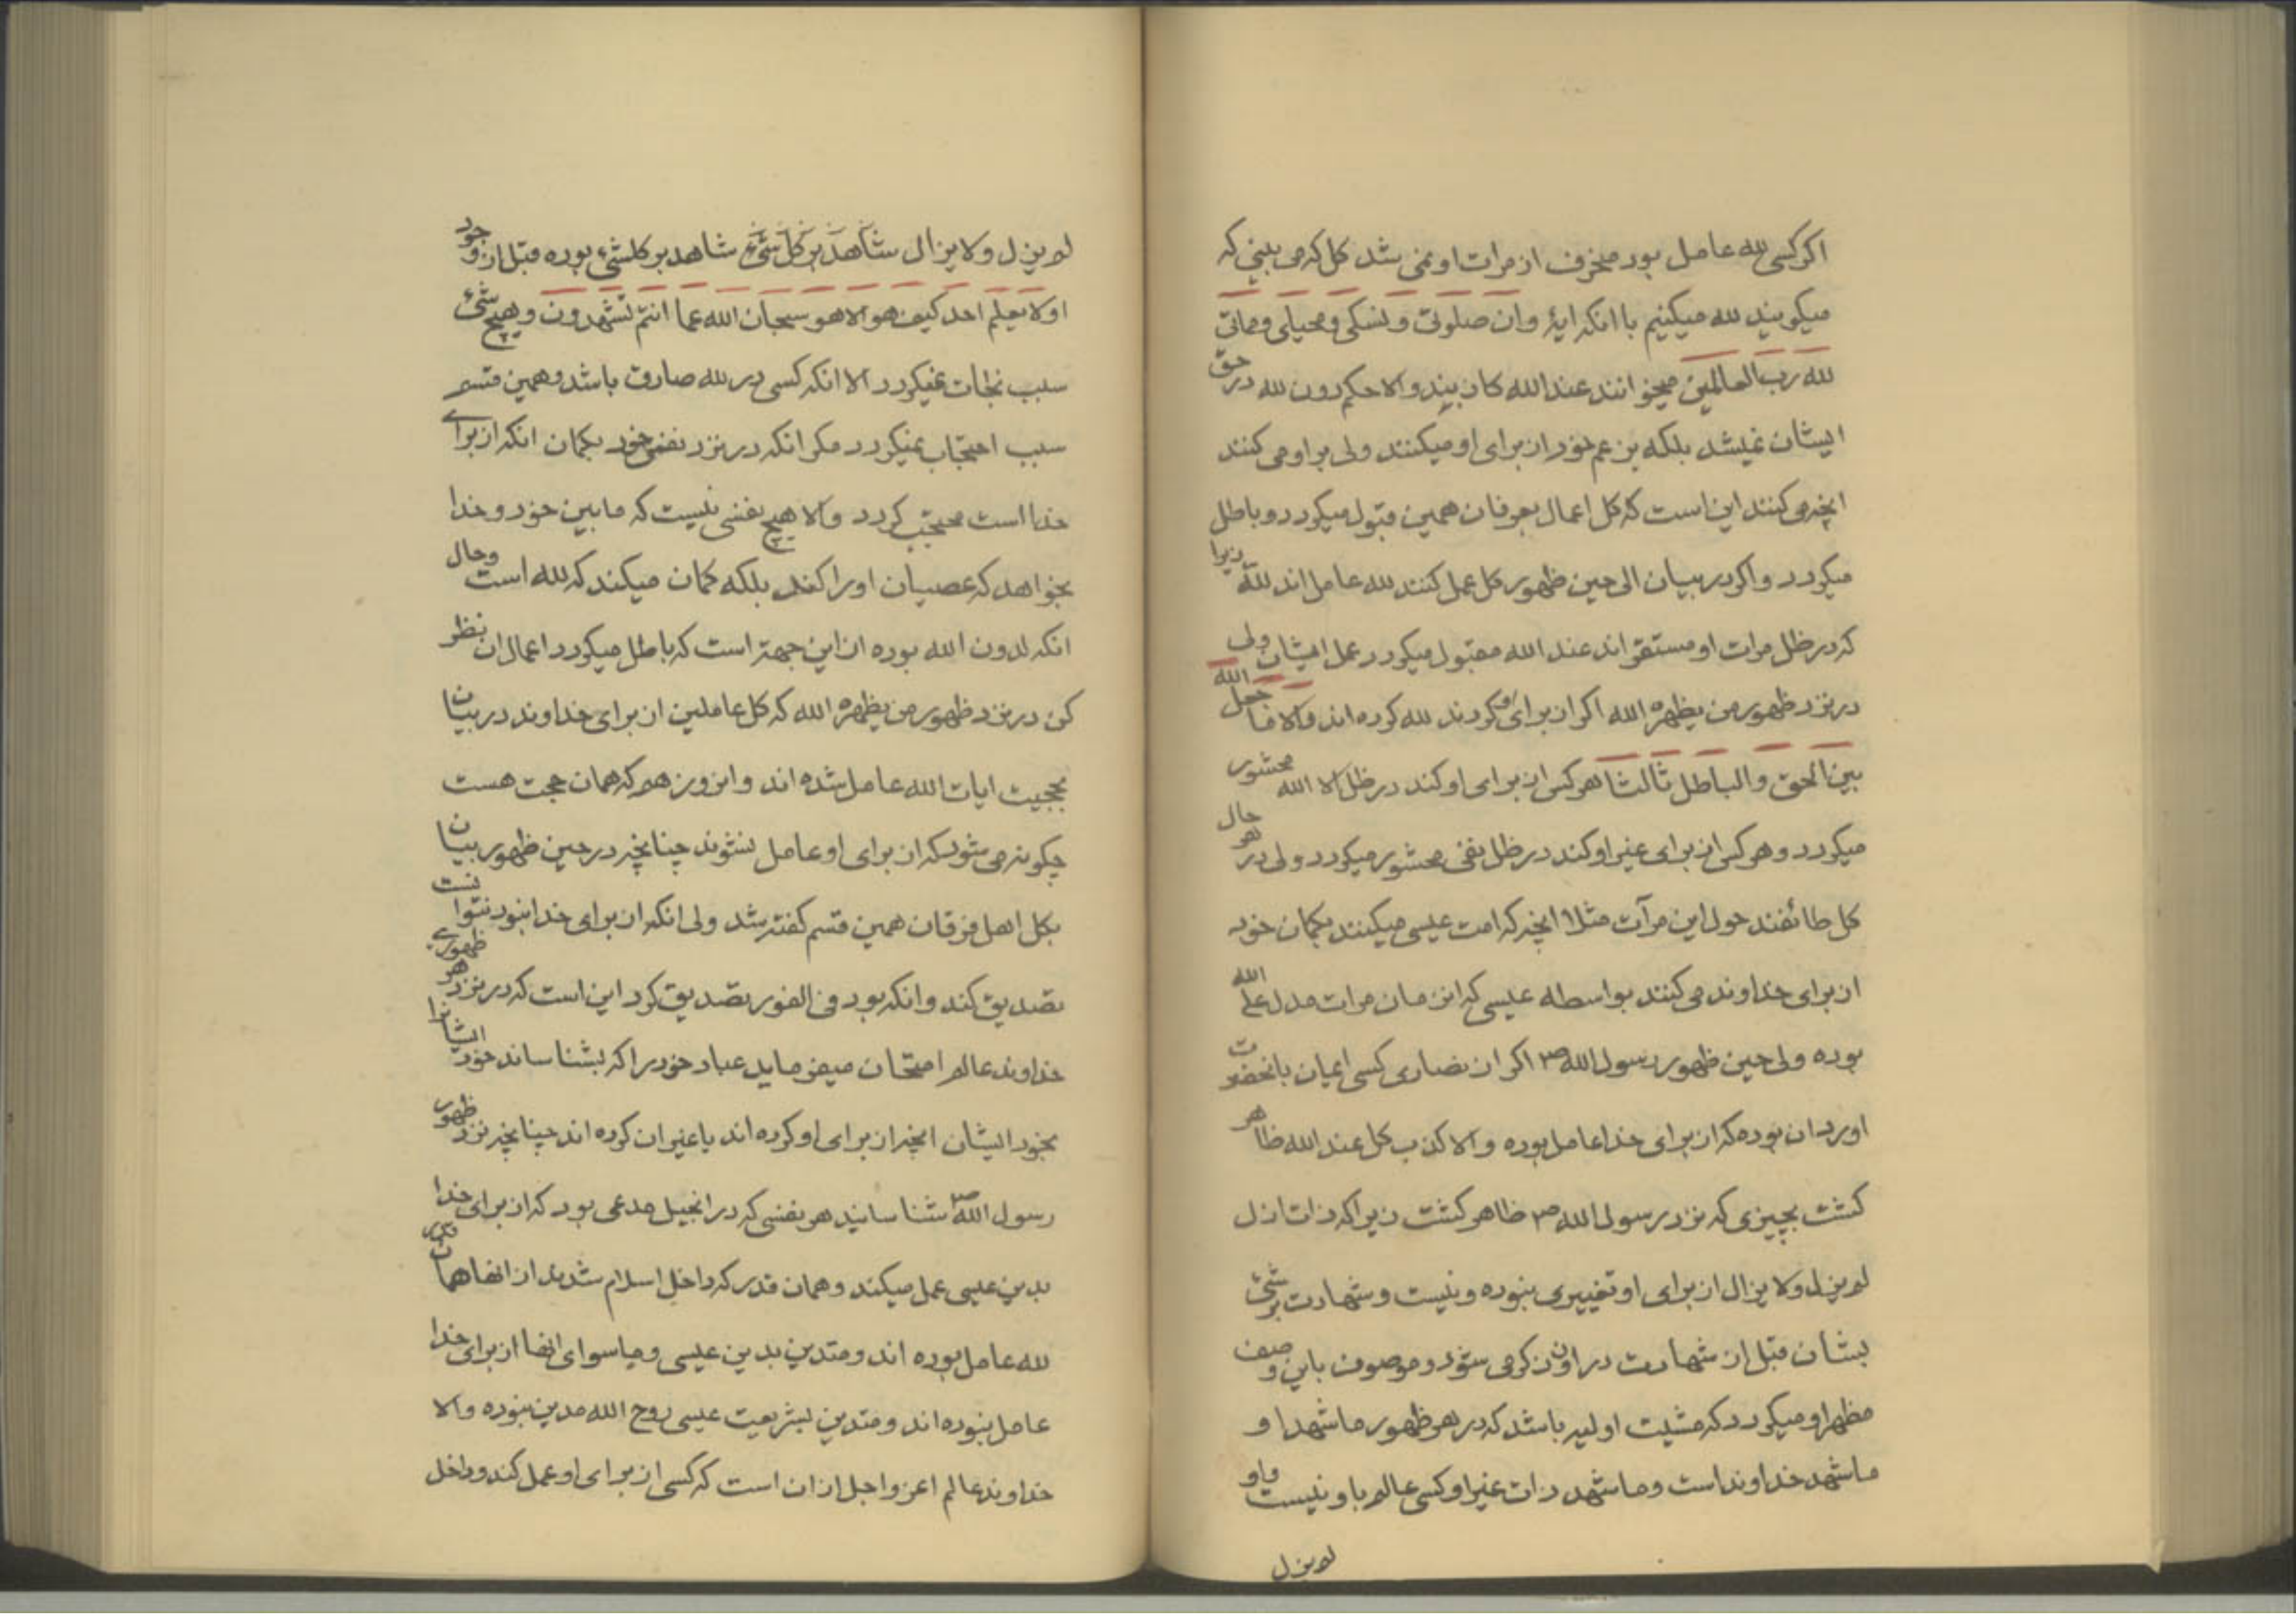 اگر کسی لله عامل بود منحرف از مرات او نمی شد کل که می بینی که
میگویند لله میکنیم با انکه ایهٔ وان صلوتی و نسکی و محیای و مماتی
لله رب العالمین میخوانند عند الله کاذبند والا حکم دون لله در حق
ایشان نمیشد بلکه بزعم خود از برای او میکنند ولی بر او می کنند
انچه می کنند این است که کل اعمال بعرفان همین قبول میگردد و باطل
میگردد و اگر در بیان الی حین ظهور کل عمل کنند لله عامل اند لله زیرا
که در ظل مرات او مستقر اند عند الله مقبول میگردد عمل ایشان ولی
در نزد ظهور من یظهره الله اگر از برای او کردند لله کرده اند والا ما جعل الله
بین الحق والباطل ثالثا هر کس از برای او کند در ظل الا الله محشور
میگردد و هر کس از برای غیر او کند در ظل نفی محشور میگردد ولی در هر حال
کل طائفند حول این مرآت مثلا انچه که امت عیسی میکنند بگمان خود
از برای خداوند می کنند بواسطه عیسی که انزمان مرات مدل علی الله
بوده ولی حین ظهور رسول الله ص اگر از نصاری کسی ایمان بانحضرت
اورد ان بوده که از برای خدا عامل بوده والا کذب کل عند الله ظاهر
گشت بچیزی که نزد رسول الله ص ظاهر گشت زیرا که ذات ازل
لم یزل ولا یزال از برای او تغییری نبوده و نیست و شهادت بر شیٔ
بشان قبل از شهادت در او ذکر می شود و موصوف باین وصف
مظهر او میگردد که مشیت اولیه باشد که در هر ظهور ما شهد او
ما شهد خداوند است وما شهد ذات غیر او کسی عالم باو نیست و او
لم یزل
لم یزل ولا یزال شاهد بر کل شیٔ شاهد بر کلشیٔ بوده قبل از وجود
او لا یعلم احد کیف هو الا هو سبحان الله عما انتم تشهدون و هیچ شیٔ
سبب نجات نمیگردد الا انکه کسی در لله صادق باشد و همین قسم
سبب احتجاب نمیگردد مگر انکه در نزد نفس خود بگمان انکه از برای
خدا است محتجب گردد والا هیچ نفسی نیست که ما بین خود و خدا
بخواهد که عصیان او را کند بلکه گمان میکند که لله است و حال
انکه لدون الله بوده از این جهة است که باطل میگردد اعمال ان نظر
کن در نزد ظهور من یظهره الله که کل عاملین از برای خداوند در بیان
بحجیت ایات الله عامل شده اند و انروز هم که همان حجت هست
چگونه می شود که از برای او عامل نشوند چنانچه در حین ظهور بیان
بکل اهل فرقان همین قسم گفته شد ولی انکه از برای خدا نبود نتوانست
تصدیق کند و انکه بود فی الفور تصدیق کرد این است که در نزد هر ظهوری
خداوند عالم امتحان میفرماید عباد خود را که بشناساند خود ایشانرا
بخود ایشان انچه از برای او کرده اند یا غیر ان کرده اند چنانچه نزد ظهور
رسول الله ص شناسانید هر نفسی که در انجیل مدعی بود که از برای خدا
بدین عیسی عمل میکند و همان قدر که داخل اسلام شدند از انها همان قدر
لله عامل بوده اند و متدین بدین عیسی و ما سوای انها از برای خدا
عامل نبوده اند و متدین بشریعت عیسی روح الله مدین نبوده والا
خداوند عالم اعز و اجل از ان است که کسی از برای او عمل کند و داخل